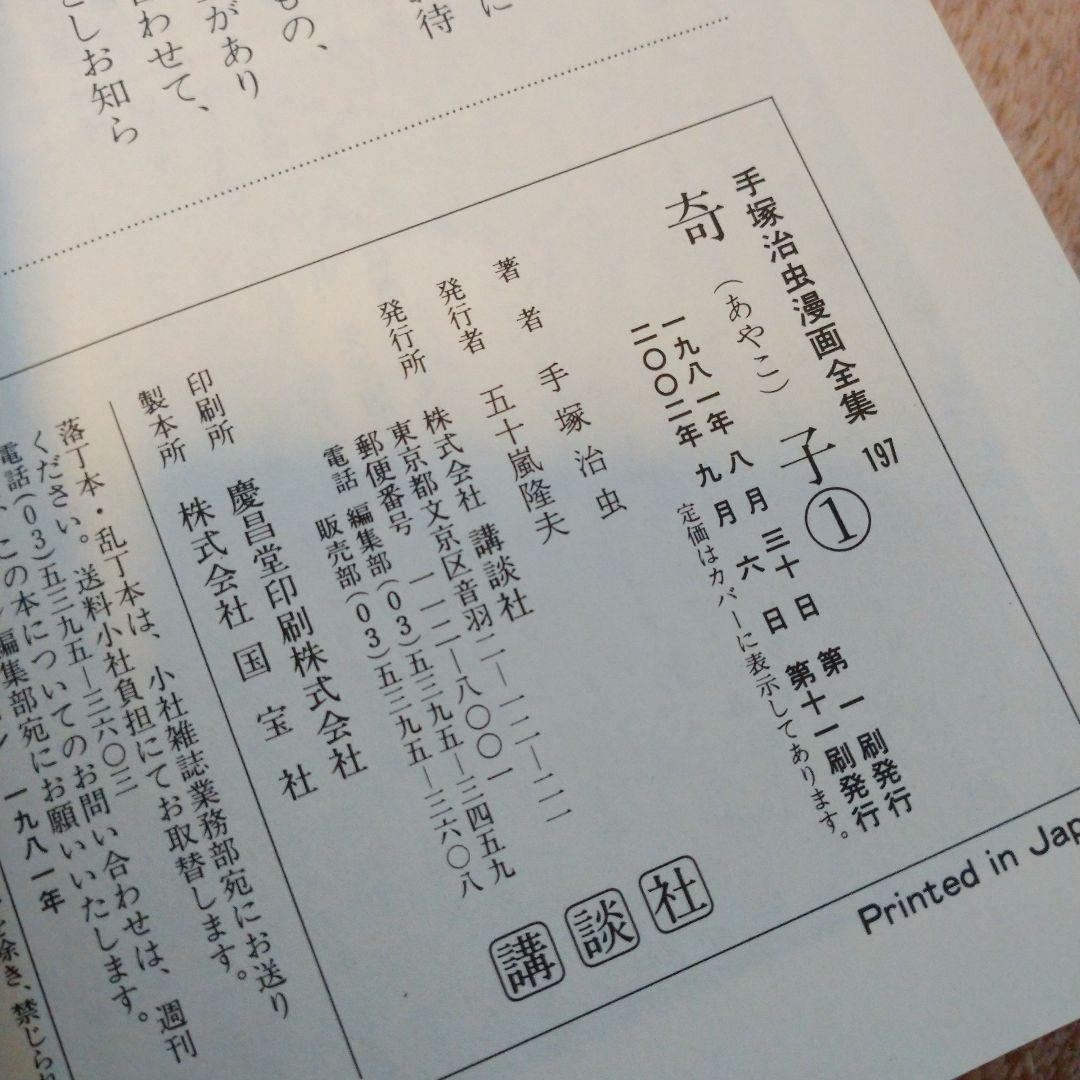 に
待
もの、
があり
わせて、
としお知ら
手塚治虫漫画全集 197
奇子①
（あやこ）
一九八一年 八月 三十日 第一刷発行
二〇〇二年 九月 六日 第十一刷発行
定価はカバーに表示してあります。
著者 手塚治虫
発行者 五十嵐隆夫
発行所 株式会社 講談社
東京都文京区音羽二—一二—二一
郵便番号 一一二—八〇〇一
電話 編集部(03)五三九五—三四五九
販売部(03)五三九五—三六〇八
印刷所 慶昌堂印刷株式会社
製本所 株式会社 国宝社
講談社
Printed in Jap
落丁本・乱丁本は、小社雑誌業務部宛にお送り
ください。送料小社負担にてお取替します。
電話(03)五三九五—三六〇三
、この本についてのお問い合わせは、週刊
編集部宛にお願いいたします。
一九八一年
を除き、禁じら